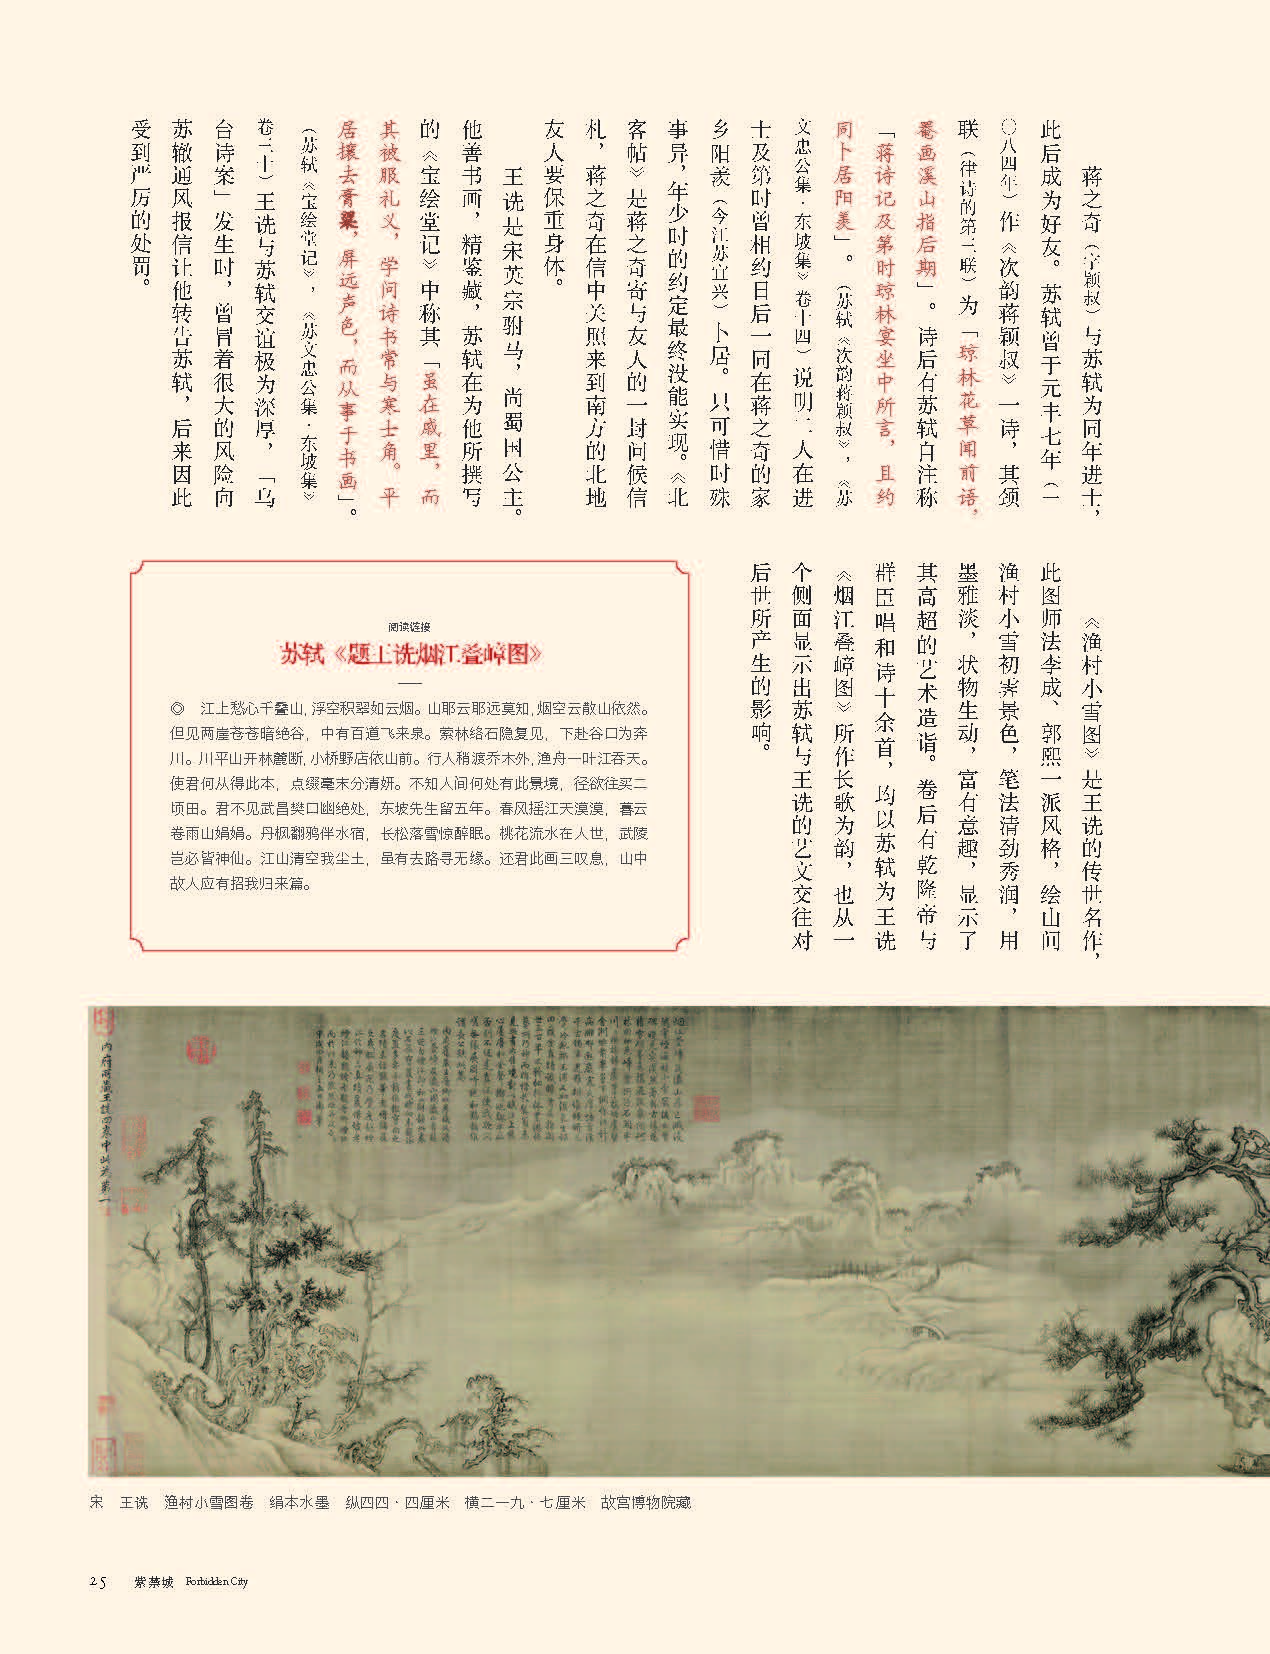 蒋之奇（字颖叔）与苏轼为同年进士，
此后成为好友。苏轼曾于元丰七年（一
〇八四年）作《次韵蒋颖叔》一诗，其颔
联（律诗的第二联）为「琼林花草闻前语，
罨画溪山指后期」。诗后有苏轼自注称
「蒋诗记及第时琼林宴坐中所言，且约
同卜居阳羡」。（苏轼《次韵蒋颖叔》，《苏
文忠公集·东坡集》卷十四）说明二人在进
士及第时曾相约日后一同在蒋之奇的家
乡阳羡（今江苏宜兴）卜居。只可惜时殊
事异，年少时的约定最终没能实现。《北
客帖》是蒋之奇寄与友人的一封问候信
札，蒋之奇在信中关照来到南方的北地
友人要保重身体。
王诜是宋英宗驸马，尚蜀国公主。
他善书画，精鉴藏，苏轼在为他所撰写
的《宝绘堂记》中称其「虽在戚里，而
其被服礼义，学问诗书常与寒士角。平
居攘去膏粱，屏远声色，而从事于书画」。
（苏轼《宝绘堂记》，《苏文忠公集·东坡集》
卷三十）王诜与苏轼交谊极为深厚，「乌
台诗案」发生时，曾冒着很大的风险向
苏辙通风报信让他转告苏轼，后来因此
受到严厉的处罚。
《渔村小雪图》是王诜的传世名作，
此图师法李成、郭熙一派风格，绘山间
渔村小雪初霁景色，笔法清劲秀润，用
墨雅淡，状物生动，富有意趣，显示了
其高超的艺术造诣。卷后有乾隆帝与
群臣唱和诗十余首，均以苏轼为王诜
《烟江叠嶂图》所作长歌为韵，也从一
个侧面显示出苏轼与王诜的艺文交往对
后世所产生的影响。
阅读链接
苏轼《题王诜烟江叠嶂图》
◎ 江上愁心千叠山，浮空积翠如云烟。山耶云耶远莫知，烟空云散山依然。
但见两崖苍苍暗绝谷，中有百道飞来泉。萦林络石隐复见，下赴谷口为奔
川。川平山开林麓断，小桥野店依山前。行人稍渡乔木外，渔舟一叶江吞天。
使君何从得此本，点缀毫末分清妍。不知人间何处有此景境，径欲往买二
顷田。君不见武昌樊口幽绝处，东坡先生留五年。春风摇江天漠漠，暮云
卷雨山娟娟。丹枫翻鸦伴水宿，长松落雪惊醉眠。桃花流水在人世，武陵
岂必皆神仙。江山清空我尘土，虽有去路寻无缘。还君此画三叹息，山中
故人应有招我归来篇。
内府所藏王诜四卷中此为第一
宋 王诜 渔村小雪图卷 绢本水墨 纵四四·四厘米 横二一九·七厘米 故宫博物院藏
25 紫禁城 Forbidden City